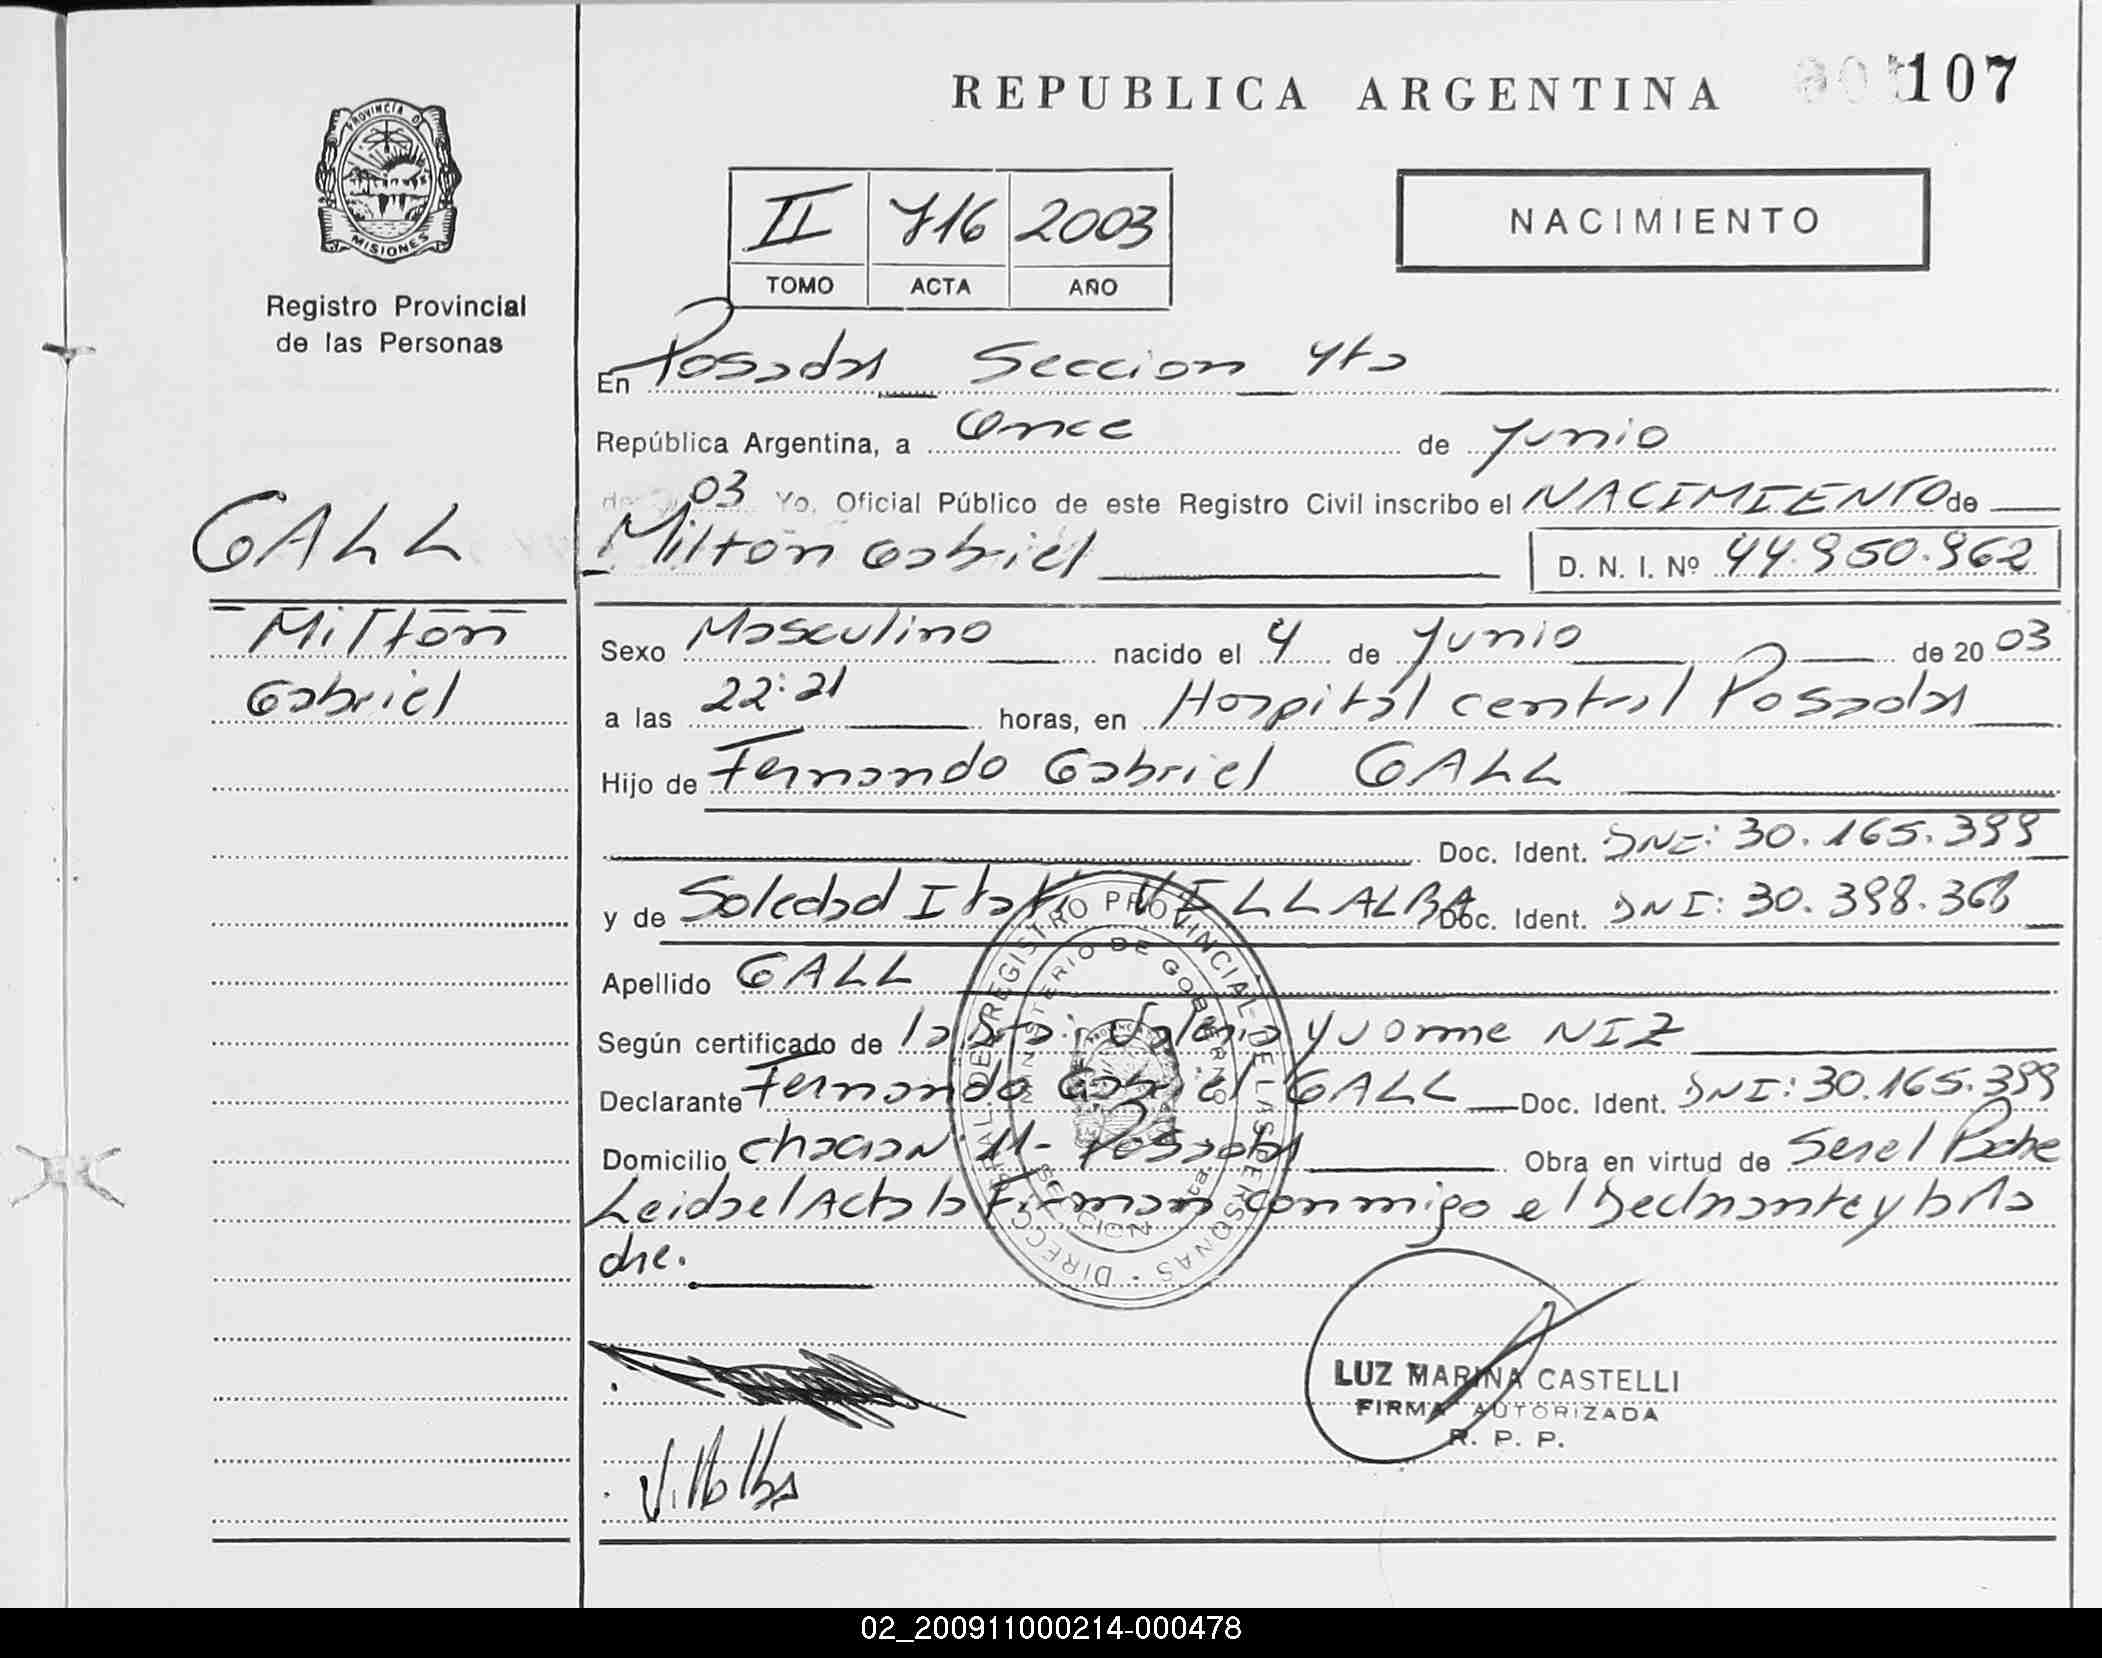 REPUBLICA ARGENTINA 107
PROVINCIA D
MISIONES
Registro Provincial
de las Personas
II 716 2003
TOMO ACTA AÑO
NACIMIENTO
En Posadas Seccion 4ta
República Argentina, a Once de Junio
de 03 Yo, Oficial Público de este Registro Civil inscribo el NACIMIENTO de
Milton Gabriel D. N. I. Nº 44.950.962
GALL
Milton
Gabriel
Sexo Masculino nacido el 4 de Junio de 20 03
a las 22:21 horas, en Hospital central Posadas
Hijo de Fernando Gabriel GALL
Doc. Ident. DNI: 30.165.399
y de Soledad Itati VILLALBA Doc. Ident. DNI: 30.398.368
Apellido GALL
Según certificado de la Sra: Valeria Yvonne NIZ
Declarante Fernando Gabriel GALL Doc. Ident. DNI: 30.165.399
Domicilio 11- Posadas Obra en virtud de Ser el Padre
Leida el Acta la Firman conmigo el Declarante y la Ma
dre.
DIRECC. GRAL. DEL REGISTRO PROVINCIAL DE LAS PERSONAS
MINISTERIO DE GOBIERNO
SECCION 4ta
LUZ MARINA CASTELLI
FIRMA AUTORIZADA
R. P. P.
Villalba
02_200911000214-000478